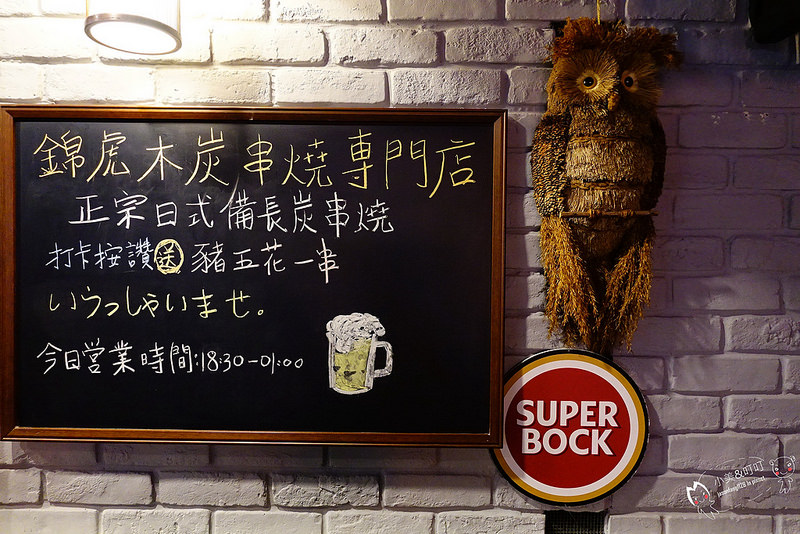 錦虎木炭串燒專門店
正宗日式備長炭串燒
打卡按讚送豬五花一串
いらっしゃいませ。
今日営業時間:18:30-01:00
SUPER
BOCK
小美&叮叮